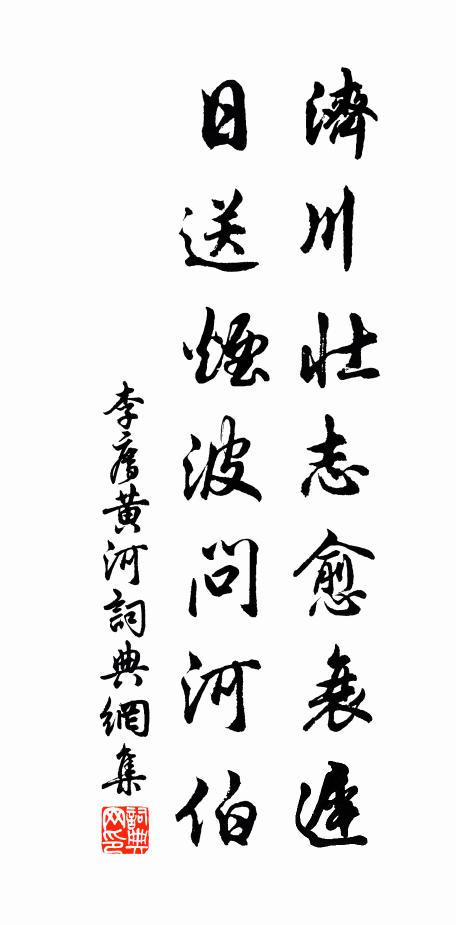 濟川壯志愈衰遲
日送煙波問河伯
李黃河詞典網集
詞典网印